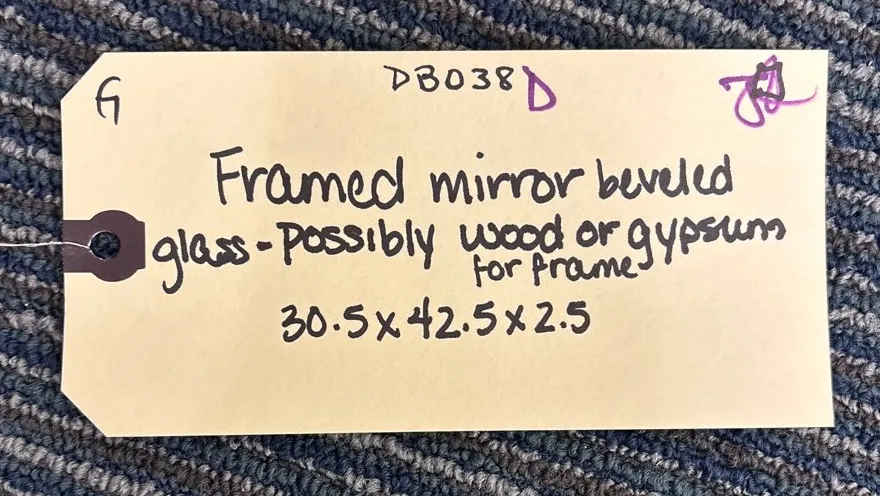 G
DB038 D
Framed mirror beveled
glass - possibly wood or gypsum
for frame
30.5 x 42.5 x 2.5